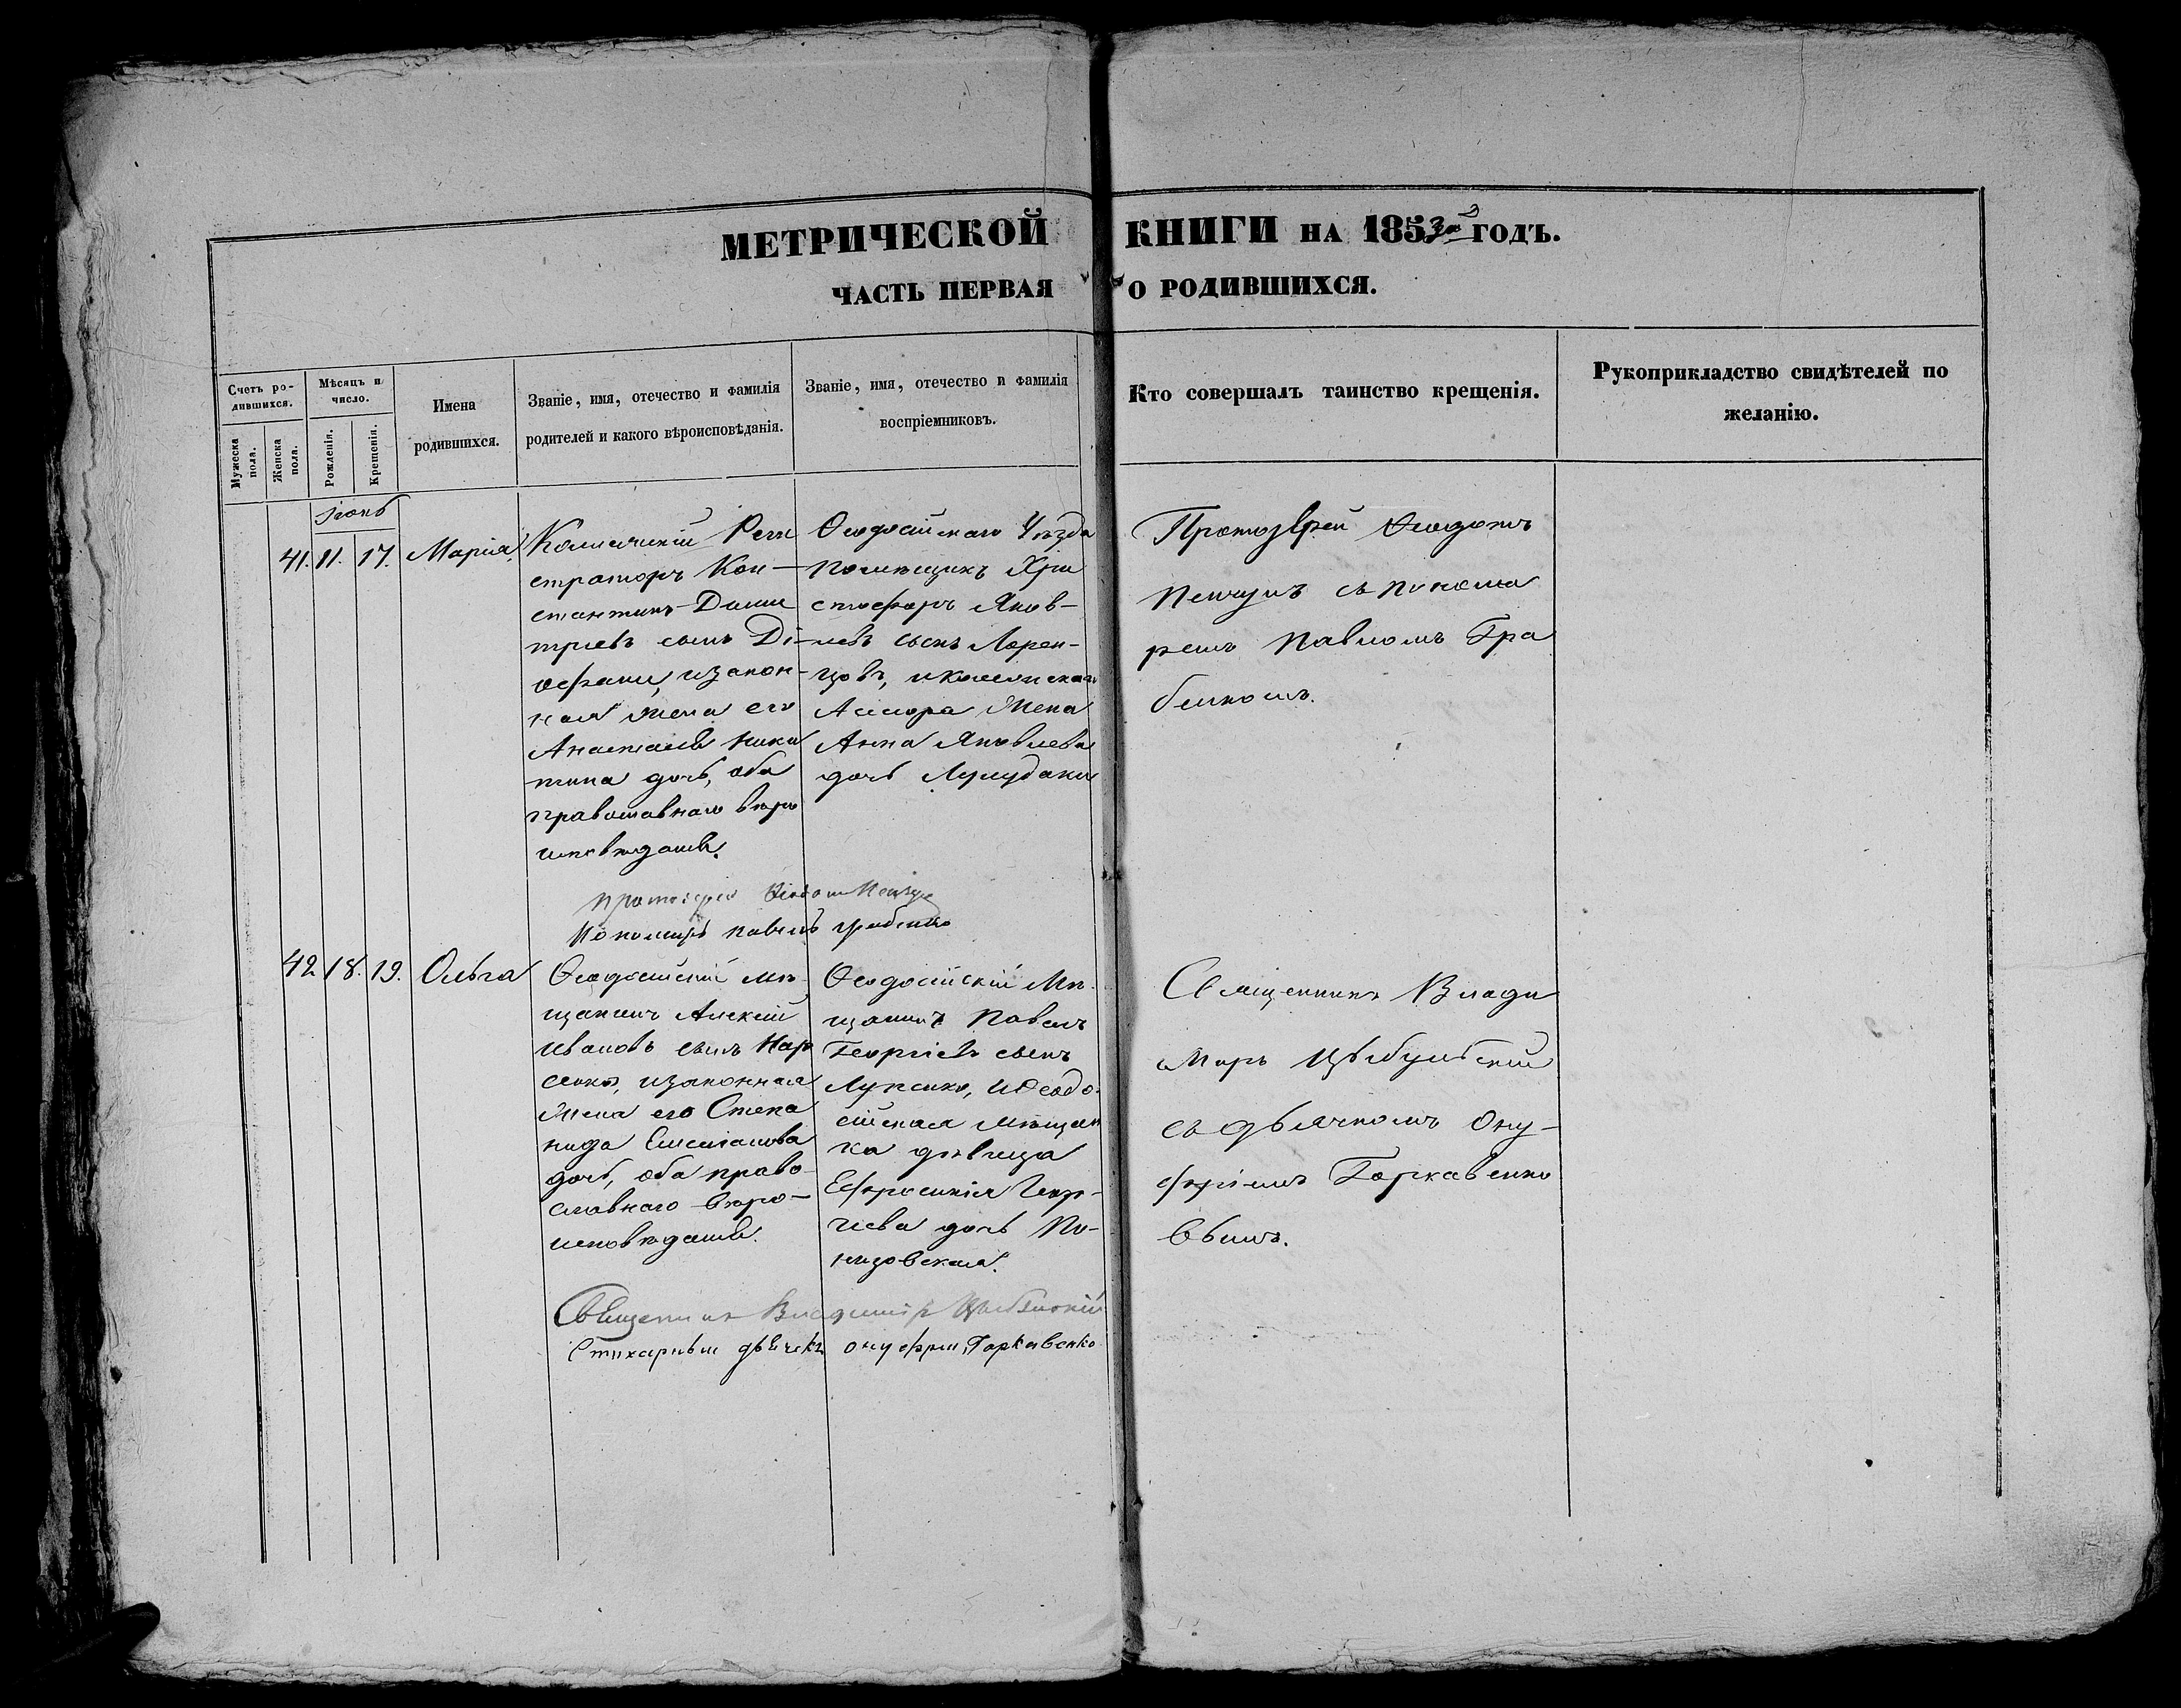 МЕТРИЧЕСКОЙ КНИГИ НА 1853й ГОДЪ.
ЧАСТЬ ПЕРВАЯ О РОДИВШИХСЯ.
Счетъ ро-
дившихся.
Мужеска пола.
Женска пола.
Мѣсяцъ и
число.
Рожденія.
Крещенія.
Имена
родившихся.
Званіе, имя, отечество и фамилія
родителей и какого вѣроисповѣданія.
Званіе, имя, отечество и фамилія
воспріемниковъ.
Кто совершалъ таинство крещенія.
Рукоприкладство свидѣтелей по
желанію.
Іюнь
41. 11. 17. Марія.
Коллежскій Реги
страторъ Кон-
стантинъ Дими
тріевъ сынъ Ді-
офани, и закон-
ная жена его
Анастасія Ники
тина дочь, оба
православнаго вѣро
исповѣданія.
Ѳеодосійскаго Уѣзда
помѣщикъ Хри
стофоръ Яков-
левъ сынъ Лорен-
цовъ, и Коллежскаго
Асесора Жена
Анна Яковлева
дочь
Протоіерей Ѳеодотъ
съ понома
ремъ Павломъ Гра
бенкомъ.
Протоіерей Ѳеодотъ
Пономарь Павелъ Грабенко
42. 18. 19. Ольга
Ѳеодосійскій мѣ-
щанинъ Алексій
Ивановъ сынъ
и законная
жена его Степа
нида Емеліанова
дочь, оба право-
славнаго вѣро-
исповѣданія.
Ѳеодосійскій Мѣ-
щанинъ Павелъ
Георгіевъ сынъ
Лупенко, и Ѳеодо-
сійская Мѣщан
ка дѣвица
Ефросинія Геор-
гіева дочь По-
низовская.
Священникъ Влади
миръ Цыбульскій
съ дьячкомъ Ону-
фріемъ Горкавенко
вымъ.
Священникъ Владиміръ Цыбульскій
Стихарный дьячекъ Онуфрій Горкавенко